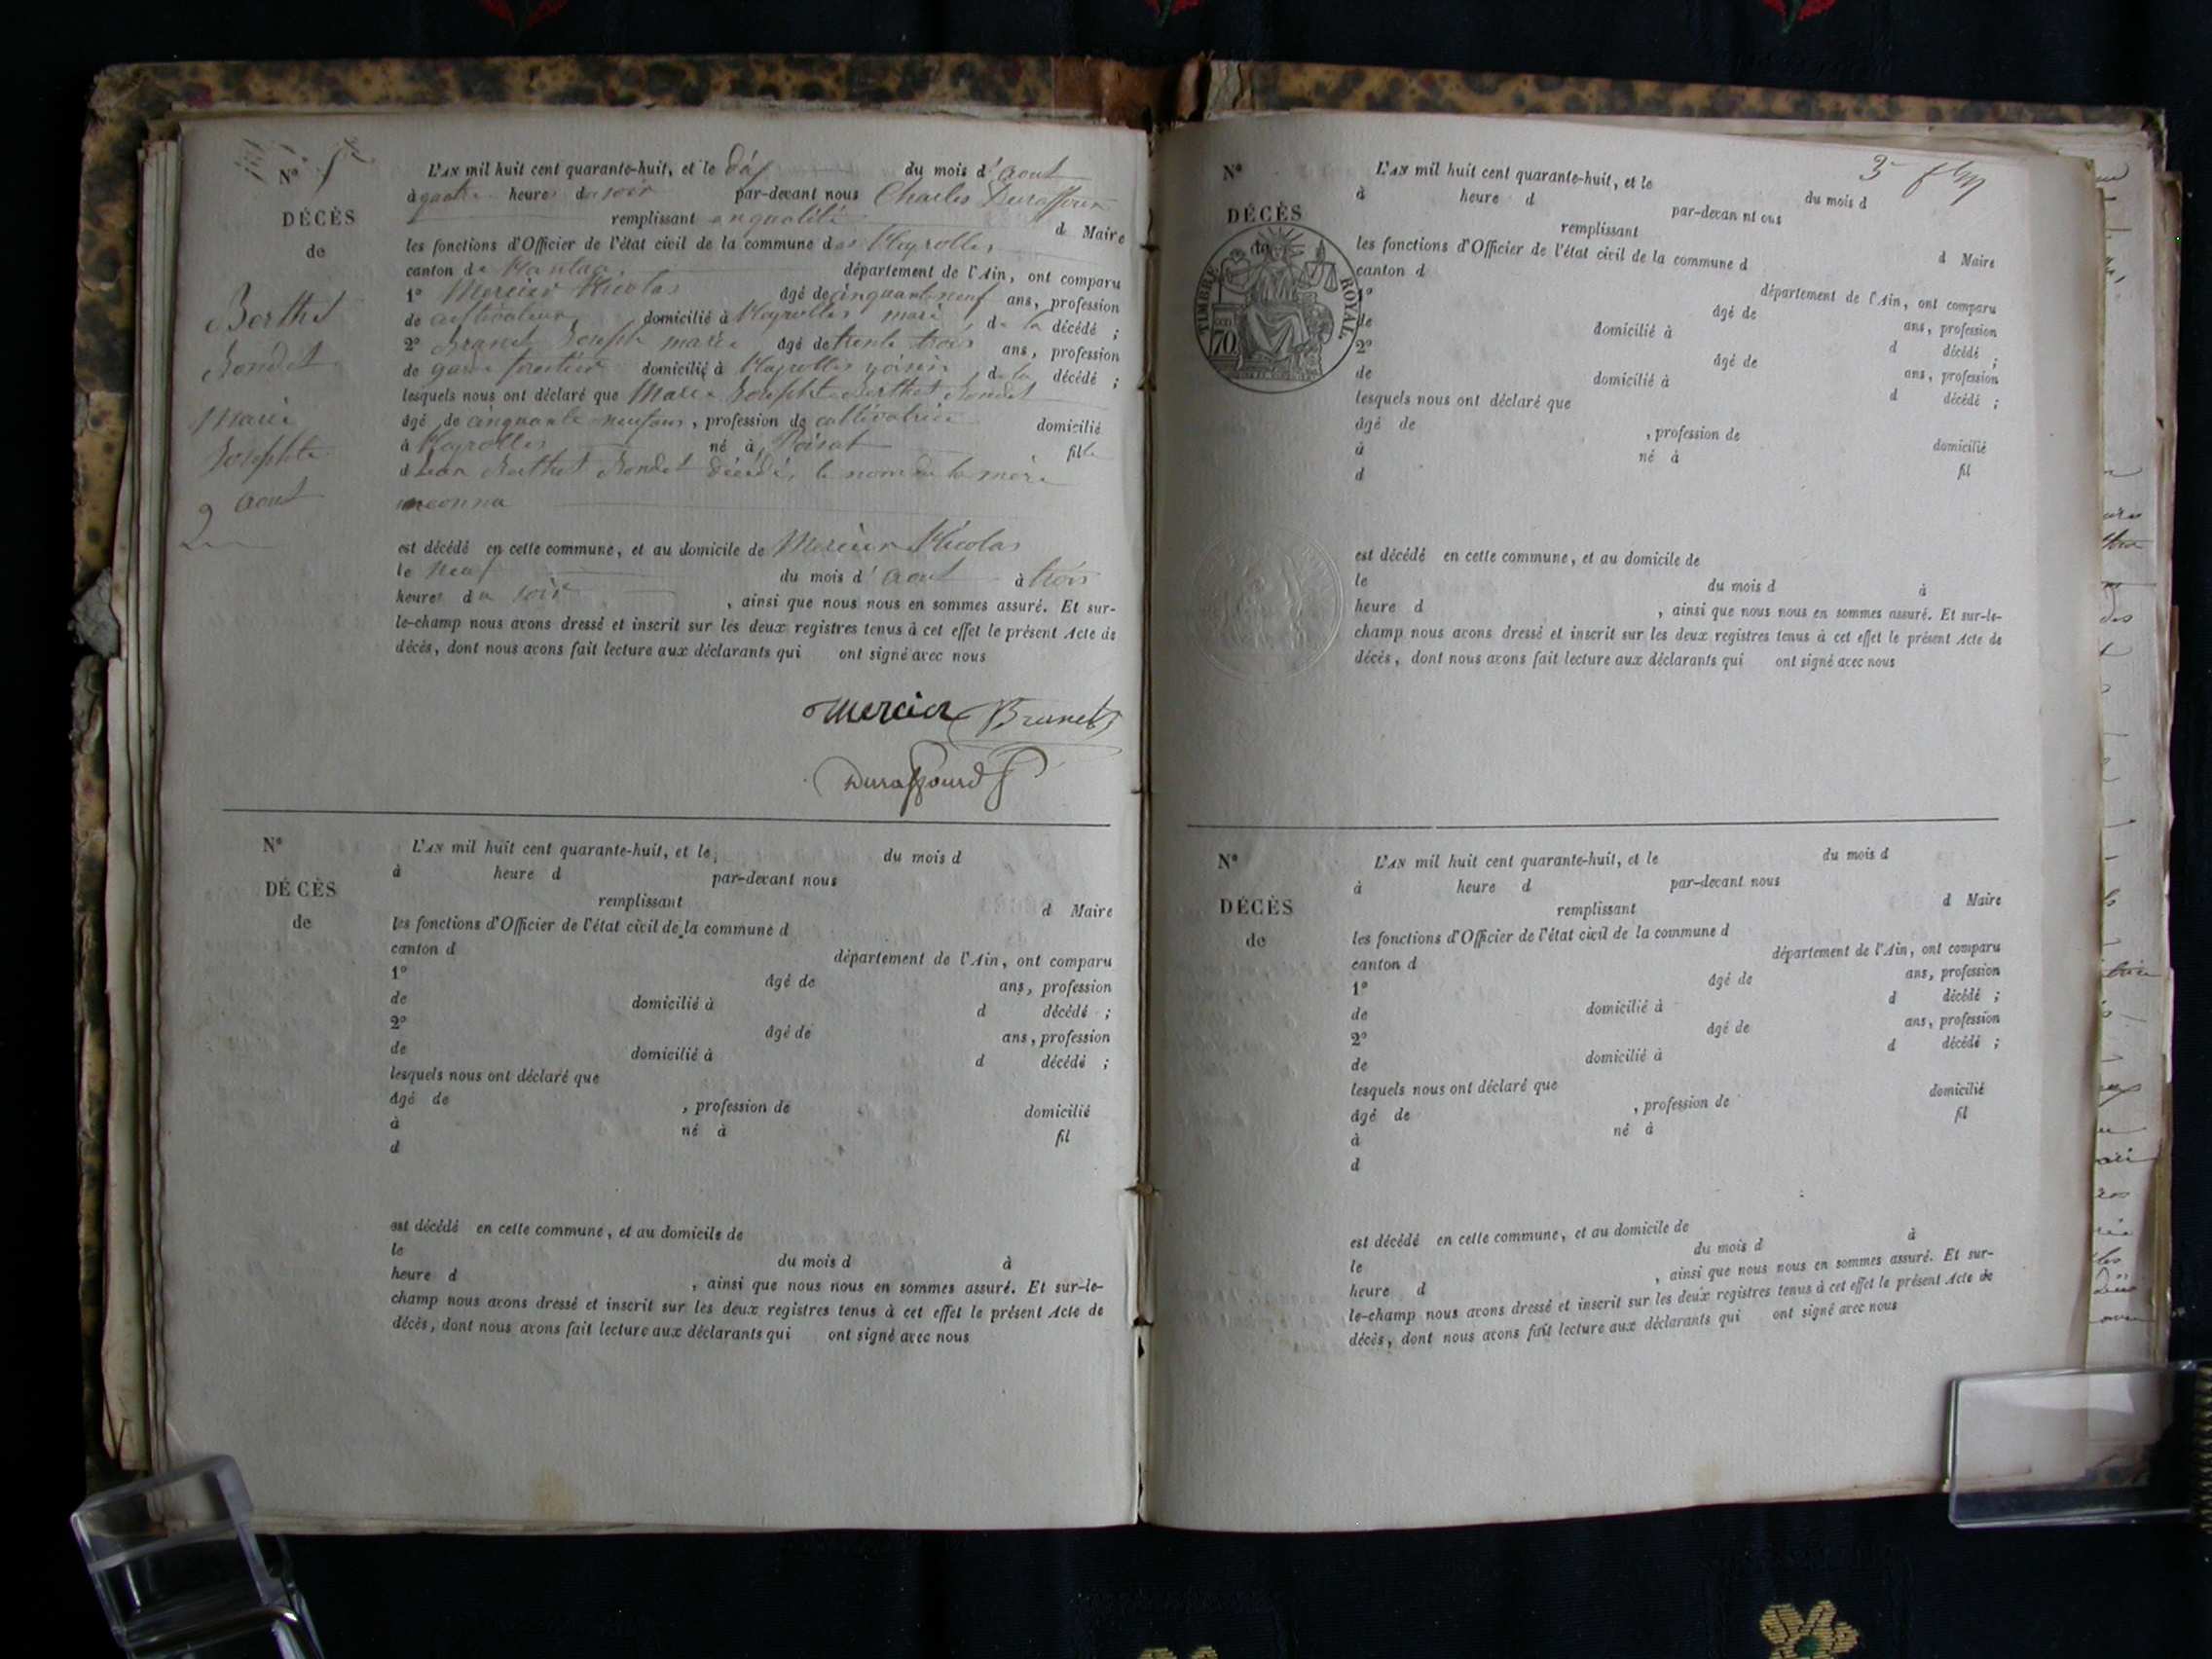 N° 5
DÉCÈS
de
Berthet
Rondet
Marie
Josephte
2 aout
L'AN mil huit cent quarante-huit, et le dix du mois d'aout
à quatre heures du soir par-devant nous Charles Duraffour
remplissant en qualité d Maire
les fonctions d'Officier de l'état civil de la commune des Neyrolles
canton de Nantua département de l'Ain, ont comparu
1° Mercier Nicolas âgé de cinquante neuf ans, profession
de cultivateur domicilié à Neyrolles mari de la décédé ;
2° Brunet Joseph marie âgé de trente trois ans, profession
de garde forestier domicilié à Neyrolles voisin de la décédé ;
lesquels nous ont déclaré que Marie Josephte Berthet Rondet
âgé de cinquante neuf ans, profession de cultivatrice domicilié
à Neyrolles né à Poisat fille
d Jean Berthet Rondet décédé, le nom de la mère
inconnu
est décédé en cette commune, et au domicile de Mercier Nicolas
le neuf du mois d'aout à trois
heures du soir , ainsi que nous nous en sommes assuré. Et sur-
le-champ nous avons dressé et inscrit sur les deux registres tenus à cet effet le présent Acte de
décès, dont nous avons fait lecture aux déclarants qui ont signé avec nous
Mercier Brunet
Duraffourd
N°
DÉCÈS
de
L'AN mil huit cent quarante-huit, et le du mois d
à heure d par-devant nous
remplissant d Maire
les fonctions d'Officier de l'état civil de la commune d
canton d département de l'Ain, ont comparu
1° âgé de ans, profession
de domicilié à d décédé ;
2° âgé de ans, profession
de domicilié à d décédé ;
lesquels nous ont déclaré que
âgé de , profession de domicilié
à né à fil
d
est décédé en cette commune, et au domicile de
le du mois d à
heure d , ainsi que nous nous en sommes assuré. Et sur-le-
champ nous avons dressé et inscrit sur les deux registres tenus à cet effet le présent Acte de
décès, dont nous avons fait lecture aux déclarants qui ont signé avec nous
N°
DÉCÈS
de
TIMBRE ROYAL
70
L'AN mil huit cent quarante-huit, et le du mois d
à heure d par-devan nt ous
remplissant d Maire
les fonctions d'Officier de l'état civil de la commune d
canton d département de l'Ain, ont comparu
1° âgé de ans, profession
de domicilié à d décédé ;
2° âgé de ans, profession
de domicilié à d décédé ;
lesquels nous ont déclaré que
âgé de , profession de domicilié
à né à fil
d
est décédé en cette commune, et au domicile de
le du mois d à
heure d , ainsi que nous nous en sommes assuré. Et sur-le-
champ nous avons dressé et inscrit sur les deux registres tenus à cet effet le présent Acte de
décès, dont nous avons fait lecture aux déclarants qui ont signé avec nous
N°
DÉCÈS
de
L'AN mil huit cent quarante-huit, et le du mois d
à heure d par-devant nous
remplissant d Maire
les fonctions d'Officier de l'état civil de la commune d
canton d département de l'Ain, ont comparu
1° âgé de ans, profession
de domicilié à d décédé ;
2° âgé de ans, profession
de domicilié à d décédé ;
lesquels nous ont déclaré que
âgé de , profession de domicilié
à né à fil
d
est décédé en cette commune, et au domicile de
le du mois d à
heure d , ainsi que nous nous en sommes assuré. Et sur-
le-champ nous avons dressé et inscrit sur les deux registres tenus à cet effet le présent Acte de
décès, dont nous avons fait lecture aux déclarants qui ont signé avec nous